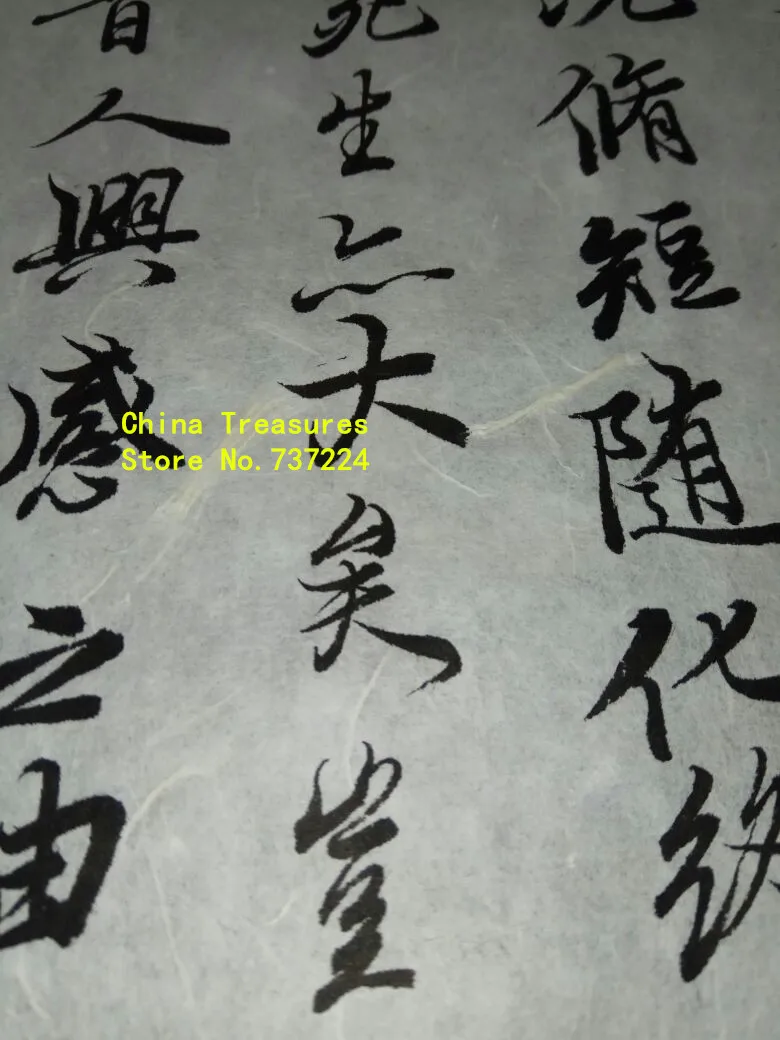 況脩短隨化終
死生亦大矣豈
昔人興感之由
China Treasures
Store No.737224